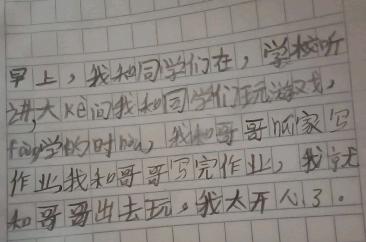 早上，我和同学们在，学校听
讲，大kè间我和同学们玩游戏，
fàng学的时hou，我和哥哥回家写
作业，我和哥哥写完作业，我就
和哥哥出去玩。我太开心了。